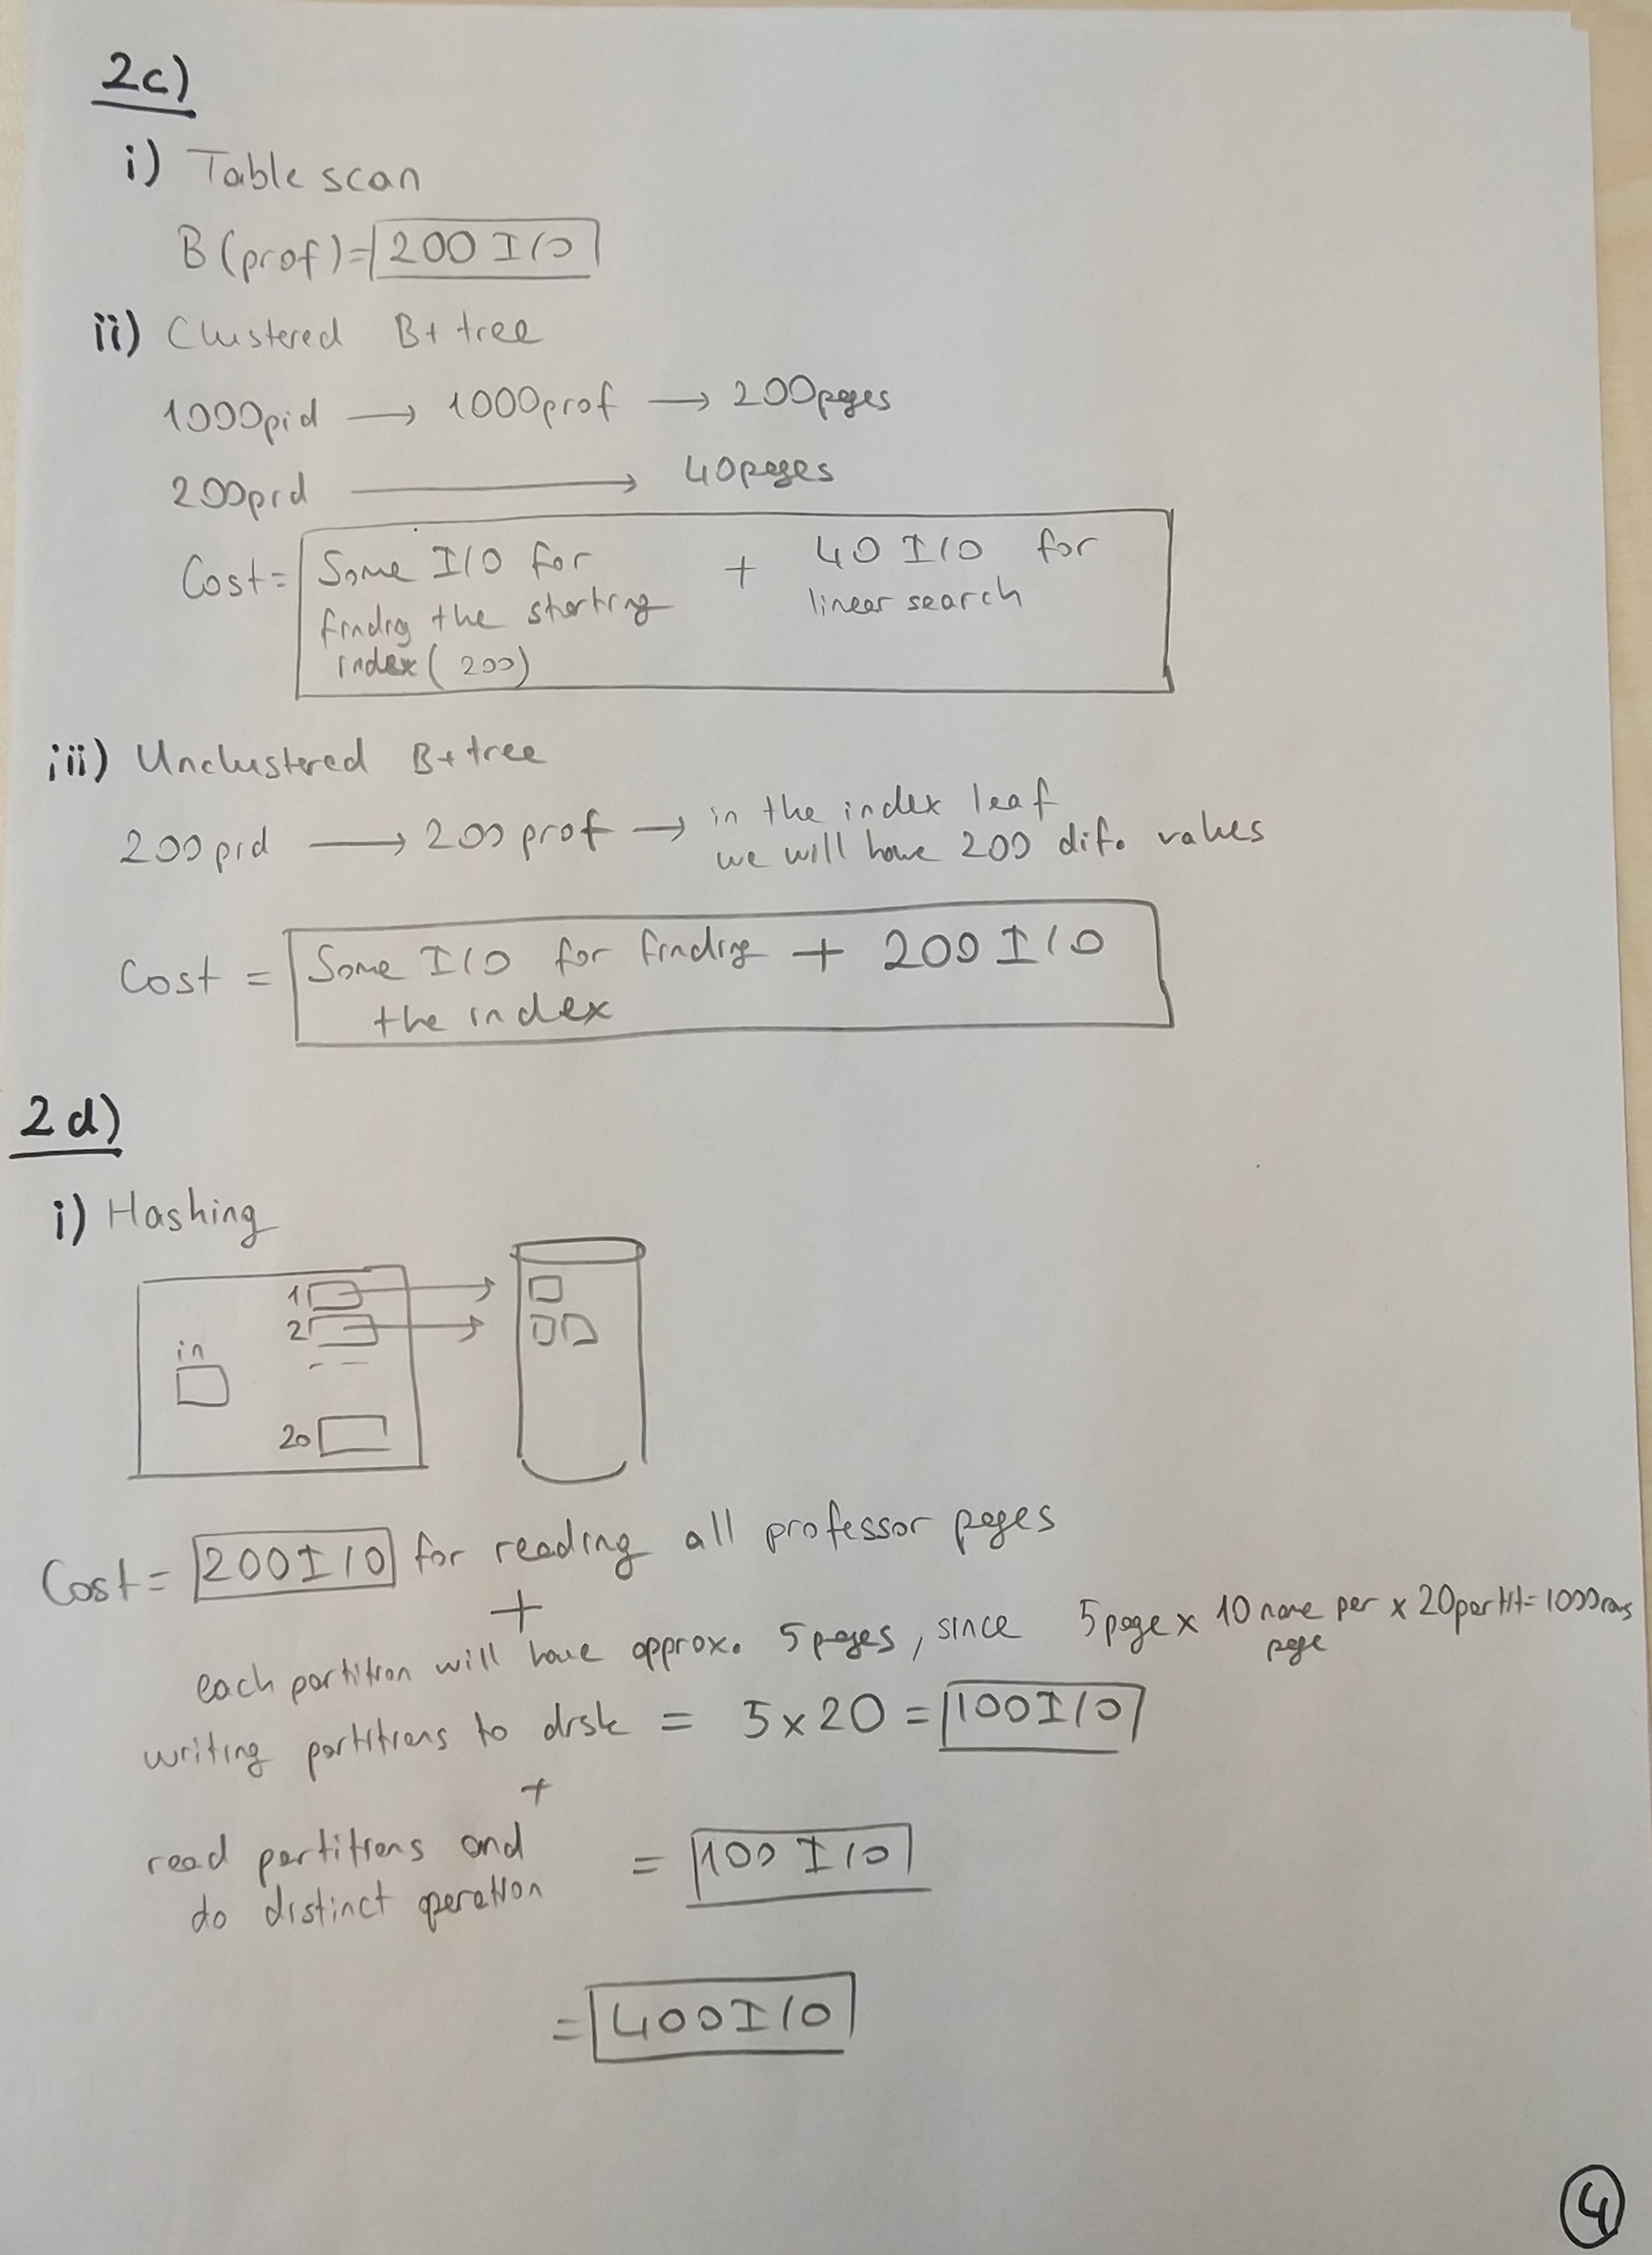 2c)
i) Table scan
B(prof)= 200 I/O
ii) Clustered B+ tree
1000pid → 1000prof → 200pages
200pid → 40pages
Cost= Some I/O for + 40 I/O for
finding the starting linear search
index (200)
iii) Unclustered B+ tree
200 pid → 200 prof → in the index leaf
we will have 200 dif. values
Cost = Some I/O for finding + 200 I/O
the index
2d)
i) Hashing
1
2
in
20
Cost= 200 I/O for reading all professor pages
+
each partition will have approx. 5 pages, since 5page x 10 name per x 20partit=1000rows
page
writing partitions to disk = 5x20 = 100 I/O
+
read partitions and = 100 I/O
do distinct operation
= 400 I/O
4